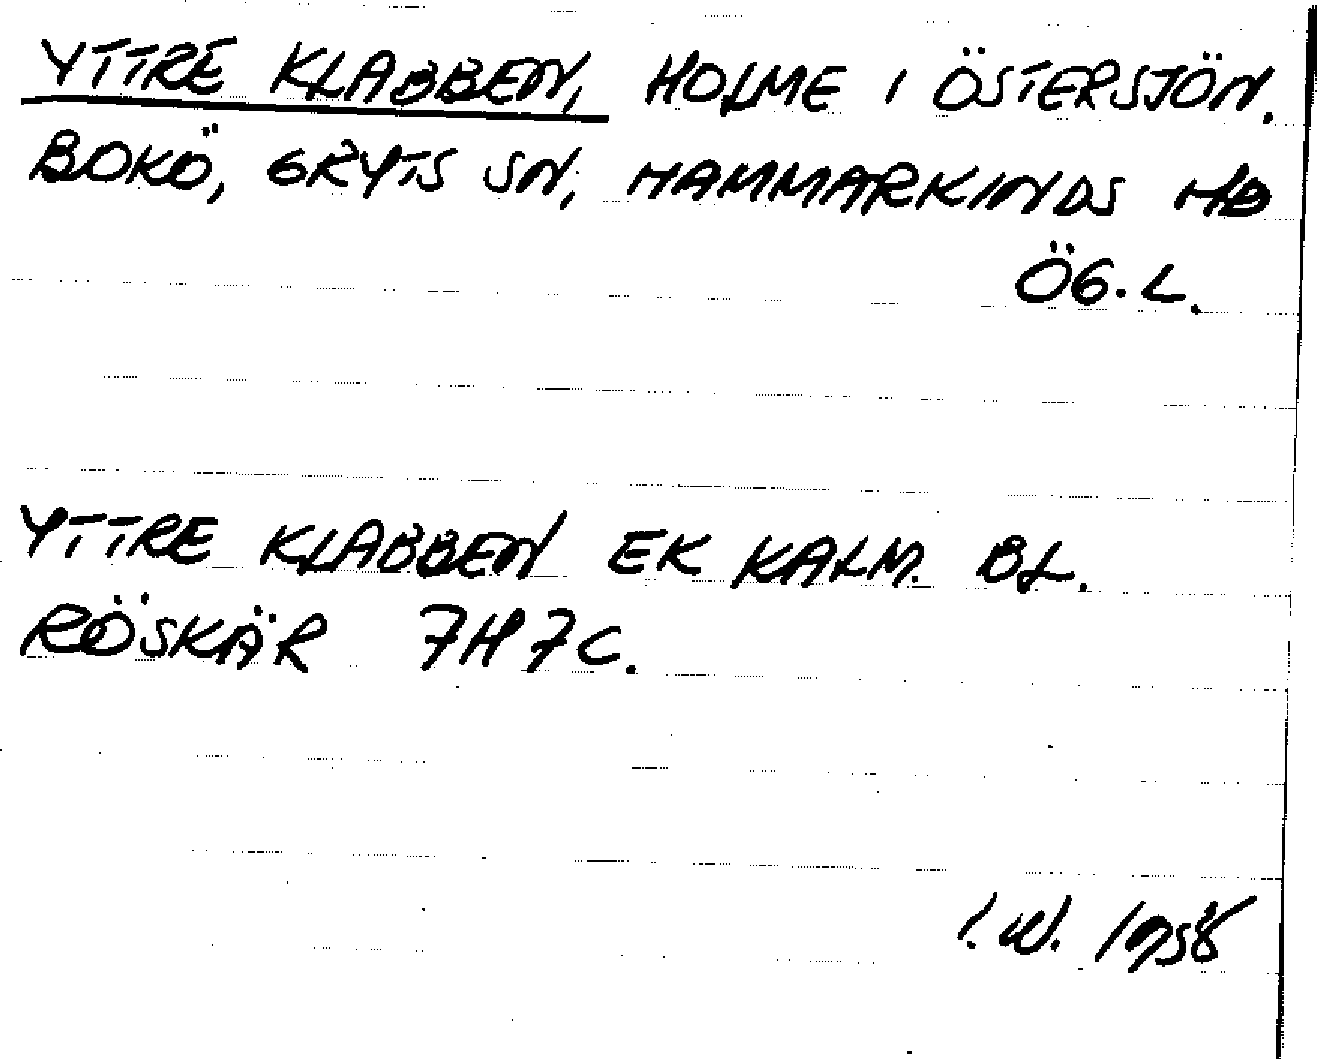 YTTRE KLABBEN, HOLME I ÖSTERSJÖN.
BOKÖ, GRYTS SN, HAMMARKINDS HD
ÖG.L.
YTTRE KLABBEN EK KALM. BL.
RÖSKÄR 7H7C.
I.W. 1958